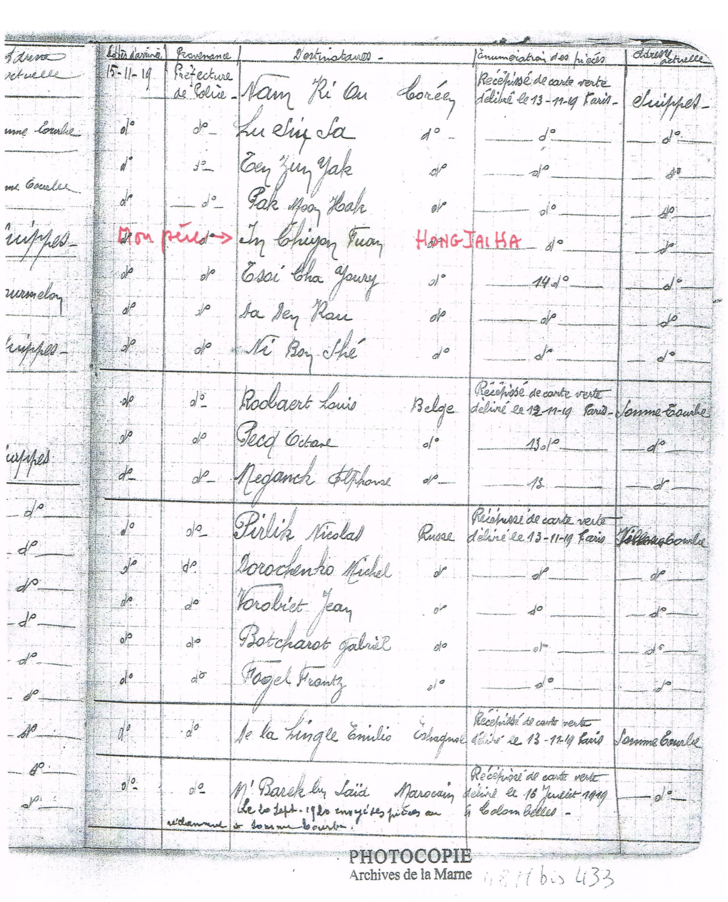 Provenance Destinataires - Énumération des pièces adresse actuelle
15-11-19 Préfecture de Police - Nam Ki Ou Coréen Récépissé de carte verte délivré le 13-11-19 Paris - Suippes -
d° d° Lu Sin Sa d° d° d°
d° d° d° d° d°
d° d° Pak Moon Hak d° d° d°
Suippes - d° Mon père d° → In Chiyon Fuan HONG JAI HA d° d°
d° d° Tsoi Cha Youry d° 14 d° d°
Mourmelon
d° d° d° d° d°
Suippes - d° d° Ni Bon Shé d° d° d°
d° d° Roobaert Louis Belge Récépissé de carte verte délivré le 12-11-19 Paris - Somme Tourbe
d° d° Pecq Octave d° 13 d° d°
Suippes
d° d° Meganck Alphonse d° 13 d°
d° d° Pirlik Nicolas Russe Récépissé de carte verte délivré le 13-11-19 Paris Tourbe
d° d° d° Dorochenko Michel d° d° d°
d° d° d° Vorobiet Jean d° d° d°
d° d° d° Botcharot Gabriel d° d° d°
d° d° d° Fogel Frantz d° d° d°
d° d° d° de la Lingle Emilio Espagnol Récépissé de carte verte délivré le 13-11-19 Paris Somme Tourbe
d° d° d° M'Barek ben Saïd Marocain Récépissé de carte verte délivré le 16 Juillet 1919 à Colombelles - d°
Le 20 Sept. 1920 envoyé les pièces au
réclamant à Somme Tourbe.
PHOTOCOPIE
Archives de la Marne
bis 433